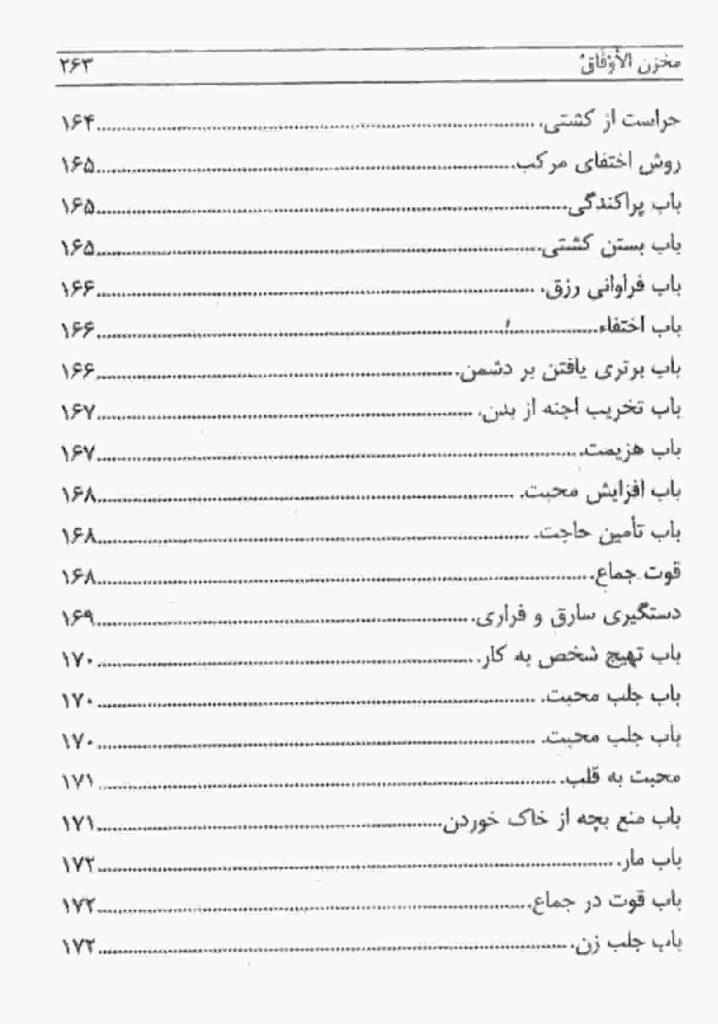 مخزن الأوفاق ۲۶۳
حراست از کشتی. ۱۶۴
روش اختفای مرکب. ۱۶۵
باب پراکندگی. ۱۶۵
باب بستن کشتی. ۱۶۵
باب فراوانی رزق. ۱۶۶
باب اختفاء. ۱۶۶
باب برتری یافتن بر دشمن. ۱۶۶
باب تخریب اجنه از بدن. ۱۶۷
باب هزیمت. ۱۶۷
باب افزایش محبت. ۱۶۸
باب تأمین حاجت. ۱۶۸
قوت جماع. ۱۶۸
دستگیری سارق و فراری. ۱۶۹
باب تهیج شخص به کار. ۱۷۰
باب جلب محبت. ۱۷۰
باب جلب محبت. ۱۷۰
محبت به قلب. ۱۷۱
باب منع بچه از خاک خوردن. ۱۷۱
باب مار. ۱۷۲
باب قوت در جماع. ۱۷۲
باب جلب زن. ۱۷۲